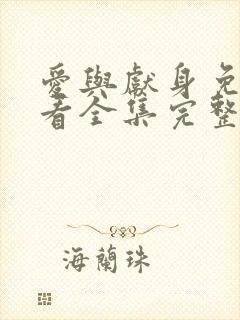 愛與獻身免
看全集完整
海蘭珠